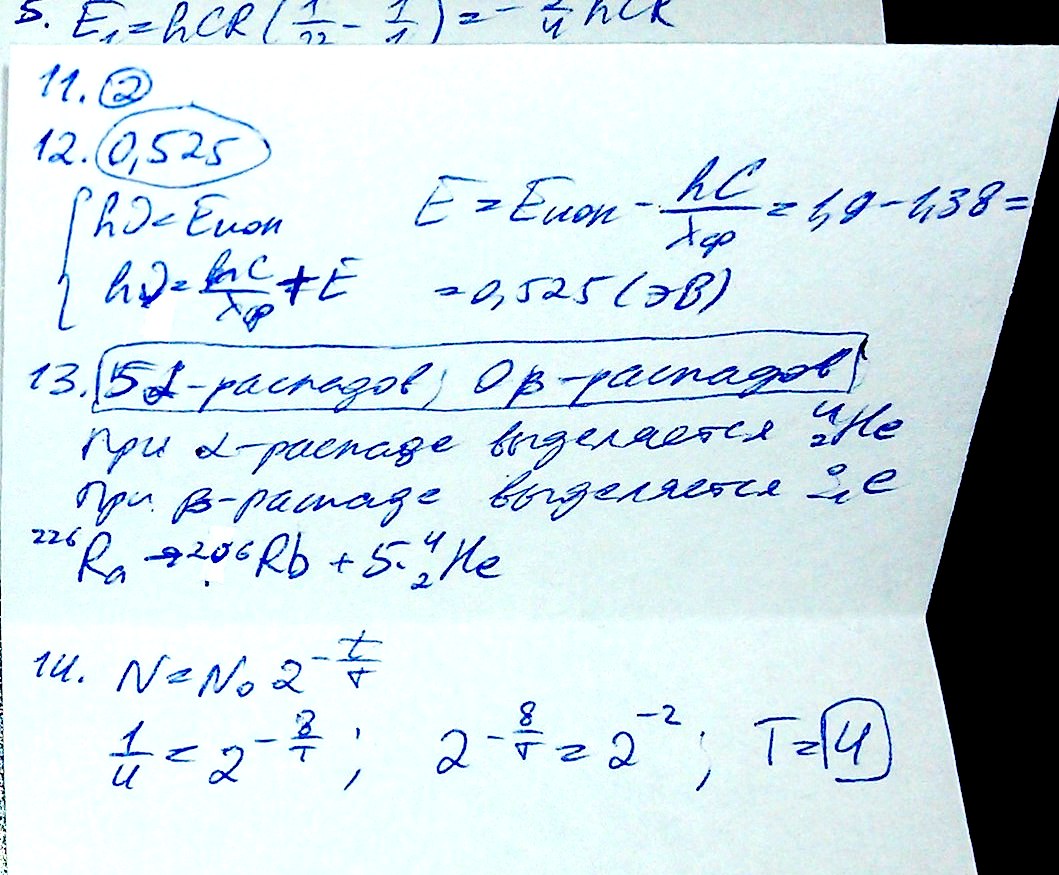 5. E₁=hCR(1/22 - 1/1)=-3/4 hCR
11. ②
12. 0,525
{ hν=Eион E=Eион - hC/λφ = 1,9-1,38=
hν=hC/λφ+E =0,525(эВ)
13. 5α-распадов; 0β-распадов
При α-распаде выделяется ⁴₂He
При β-распаде выделяется ⁰₋₁e
²²⁶Ra → ²⁰⁶Rb + 5·⁴₂He
14. N=N₀2^(-t/T)
1/4 = 2^(-8/T); 2^(-8/T) = 2^(-2); T=4